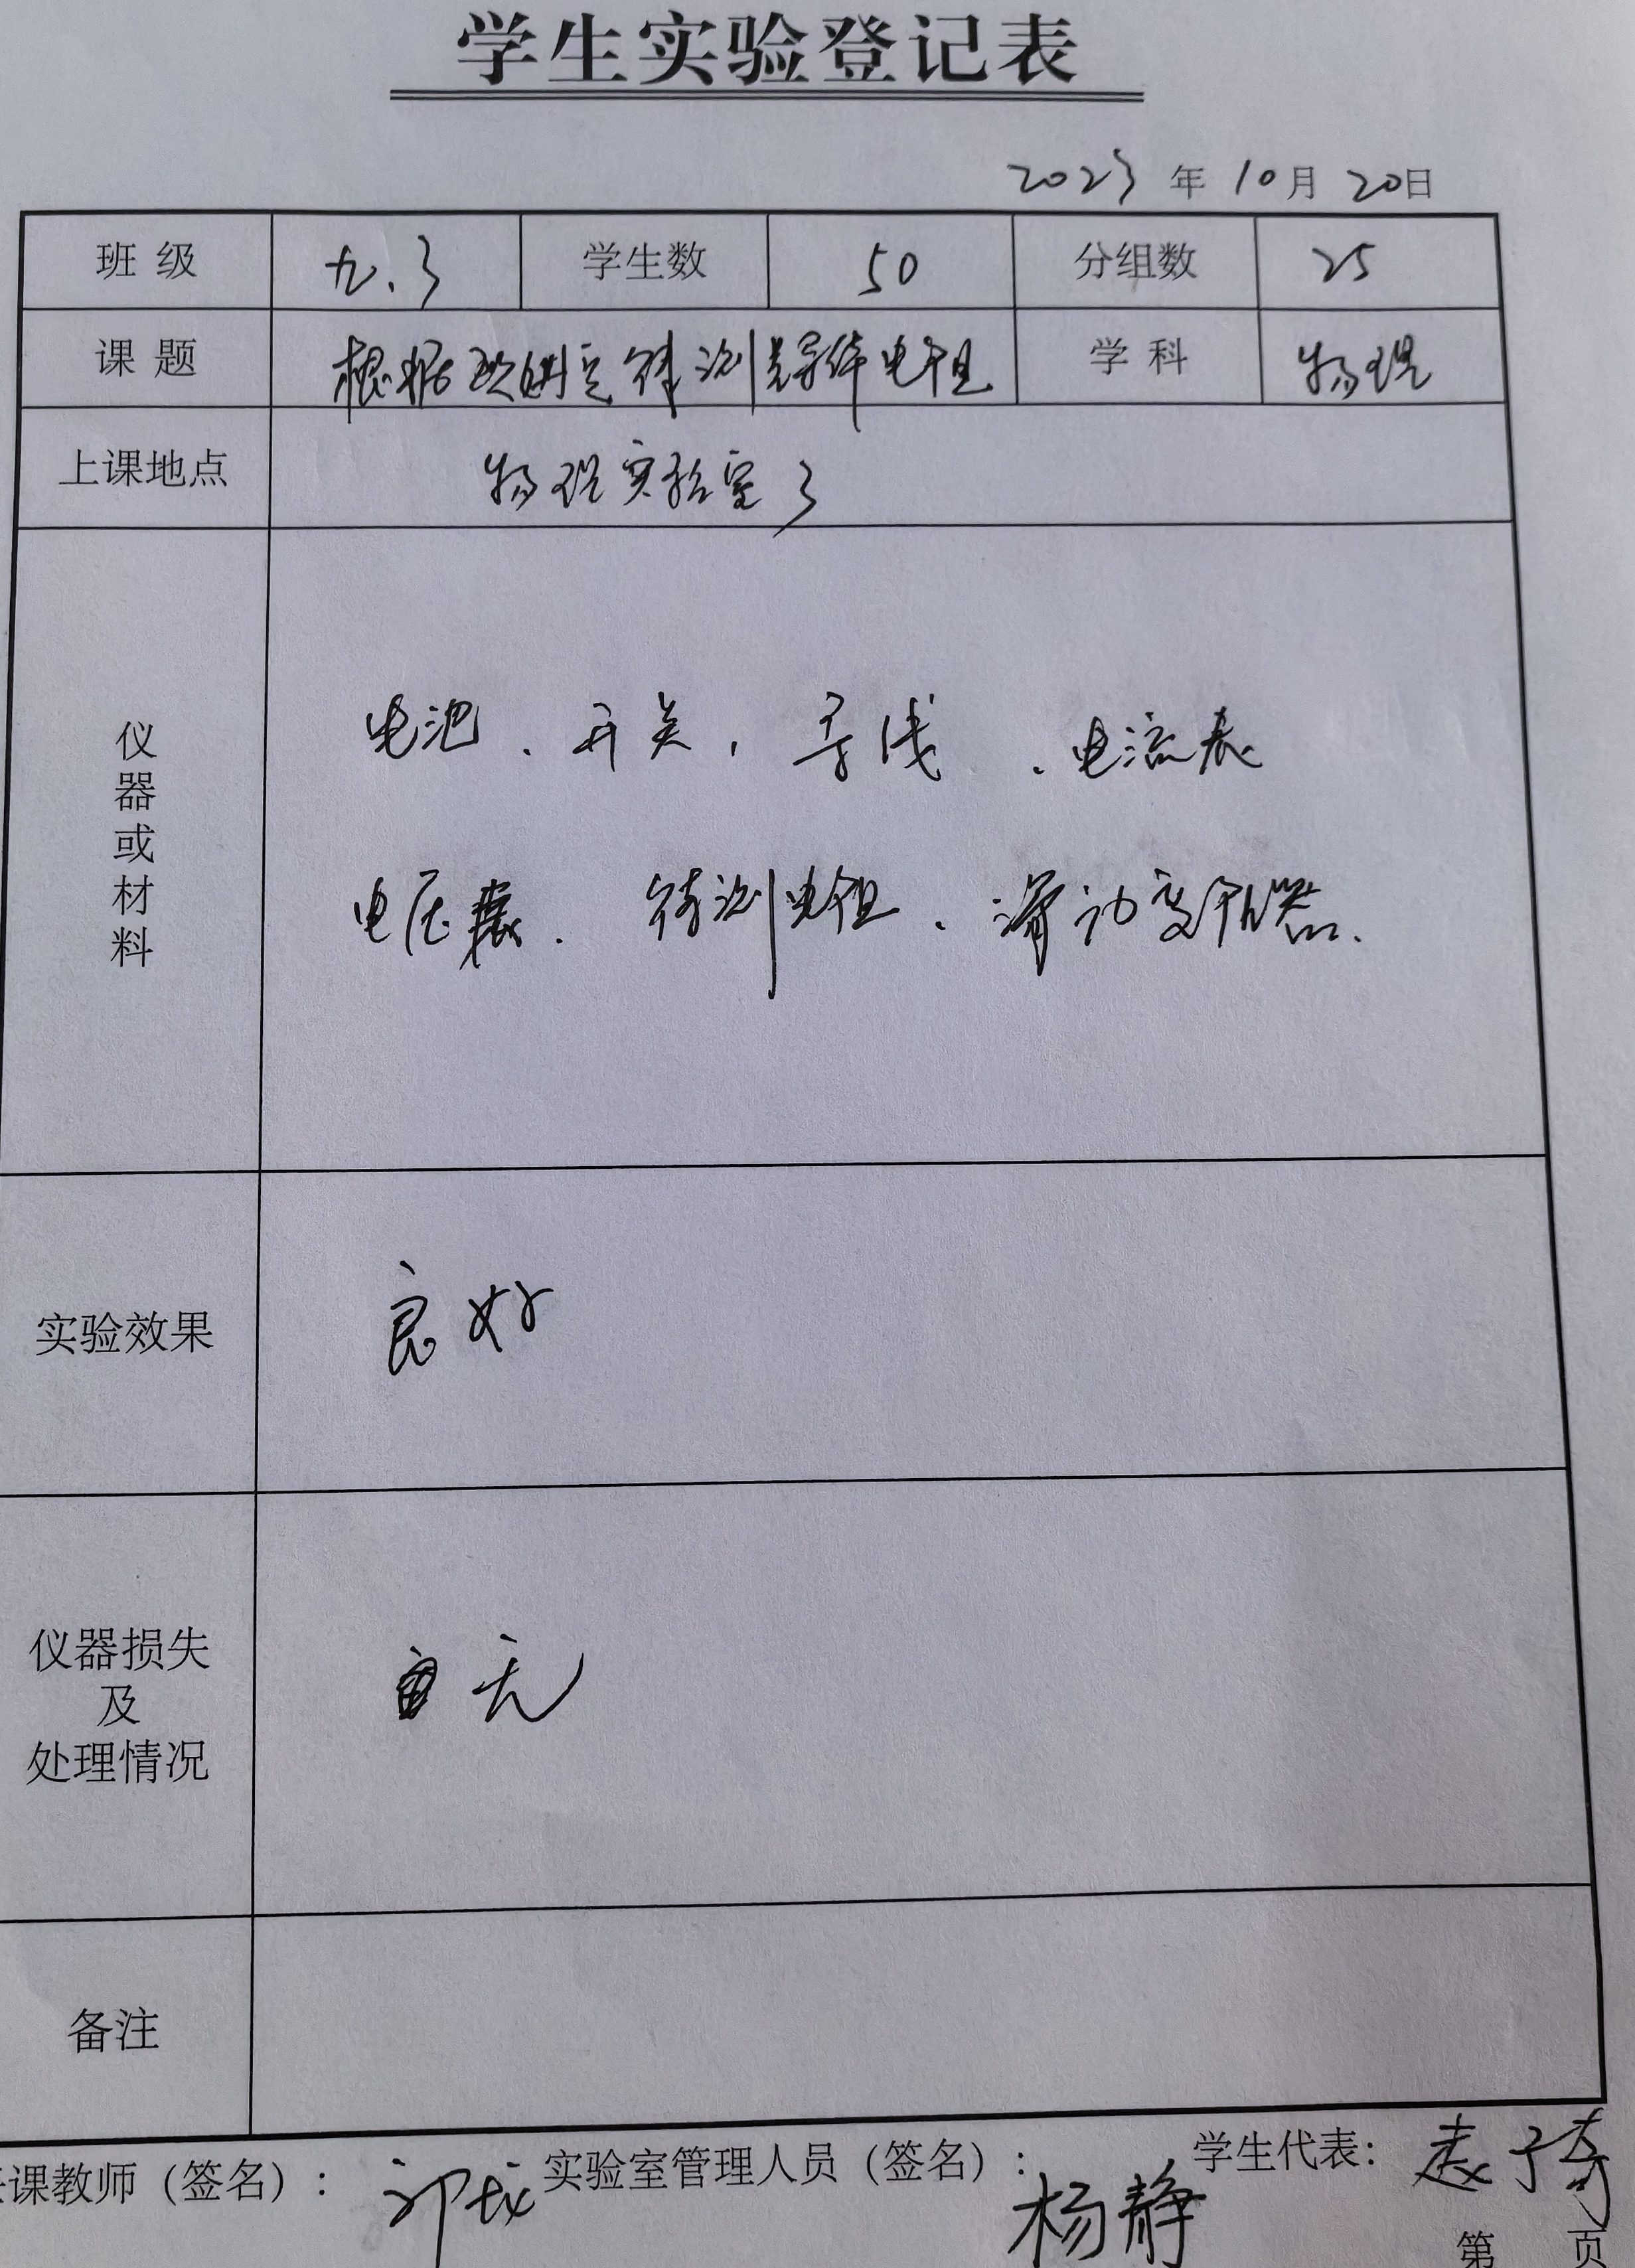 学生实验登记表
2023 年 10 月 20 日
班 级 九.3 学生数 50 分组数 25
课 题 根据欧姆定律测量导体电阻 学 科 物理
上课地点 物理实验室3
仪器或材料
电池、开关，导线、电流表
电压表、待测电阻、滑动变阻器.
实验效果 良好
仪器损失
及
处理情况
无
备注
课教师（签名）： 实验室管理人员（签名）：杨静 学生代表：
第 页